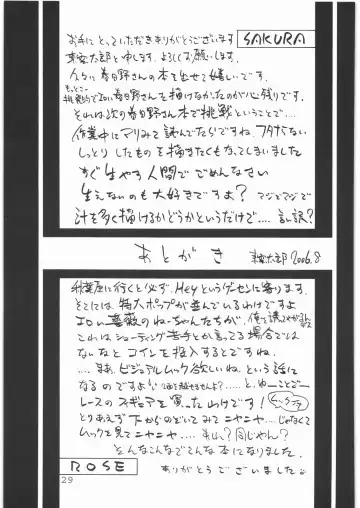 SAKURA
お手にとっていただきありがとうございます
東安太郎と申します。よろしくお願いします。
久々に春日野さんの本を出せて嬉しいです。
もっとこー
挑発的でエロい春日野さんを描けなかったのが心残りです。
それは次の春日野さん本で挑戦ということで…
作業中にマリみて読んでたらですね、フタナリない
しっとりしたものを描きたくもなってしまいました
すぐ生やす人間でごめんなさい
生えないのも大好きですよ? マジとマジで
汁を多く描けるかどうかというだけで…. 言い訳?
あとがき
2006.8
秋葉原に行くと必ず、Heyというゲーセンに寄ります。
そこには、特大ポップが並んでいるわけですよ
エロい薔薇のねーちゃんたちが、俺を誘って
これはシューティング苦手とか言ってる場合では
ないなとコインを投入するとですね。
.... まあ、ビジュアルムック欲しいね、という話に
なるのですよ
レースのフィギュアを買ったわけです!
とりあえず下からのぞいてみてニヤニヤ.... じゃなくて
ムックを見てニヤニヤ..... あれ? 同じじゃん?
そんなこんなでこんな本になりました。
ROSE
ありがとうございました
29